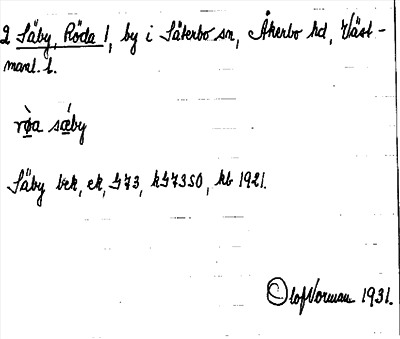 2 Säby, Röda 1, by i Säterbo sn, Åkerbo hd, Väst-
manl. l.
rø̀a sǽby
Säby bek, ek, G73, hG73SO, kb 1921.
Olof Norman 1931.